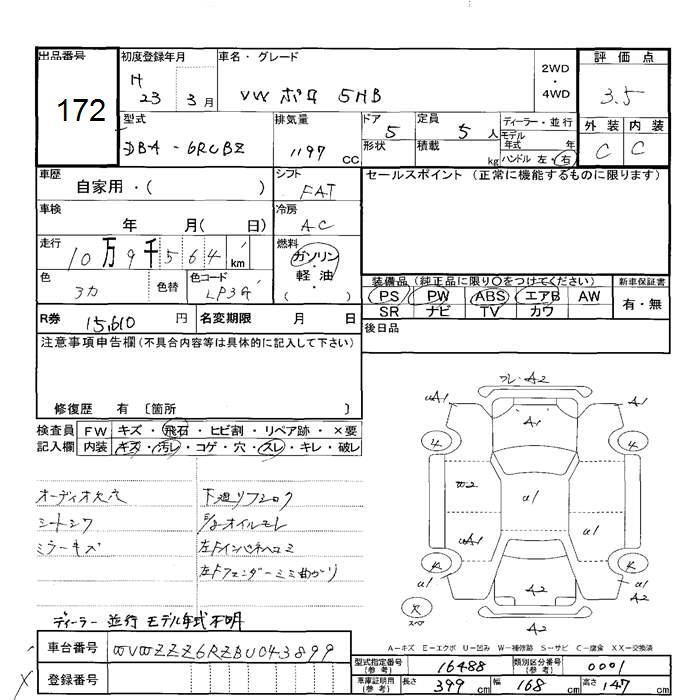 出品番号 初度登録年月 車名・グレード 2WD ・ 4WD 評価点
172
H 23 3月 VW ポロ 5HB 3.5
型式 排気量 ドア 5 定員 5人 ディーラー・並行 外装 内装
DBA-6RCBZ 1197 CC 形状 積載 kg モデル年式 年 C C
ハンドル 左・右
車歴 自家用・( ) シフト FAT セールスポイント (正常に機能するものに限ります)
車検 年 月( 日) 冷房 AC
走行 10万9千564 km 燃料 ガソリン・軽油 ( )
色 色替 色コード LP3G 装備品 (純正品に限り○をつけてください) 新車保証書
PS PW ABS エアB AW 有・無
SR ナビ TV カワ
R券 15,610 円 名変期限 月 日 後日品
注意事項申告欄(不具合内容等は具体的に記入して下さい)
修復歴 有 〔箇所 〕
検査員 FW キズ・飛石・ヒビ割・リペア跡・×要
記入欄 内装 キズ・汚レ・コゲ・穴・スレ・キレ・破レ
オーディオ大穴 下廻りフシロク
シートシワ オイルモレ
ミラーキズ 左Fインパネヘコミ
左Fフェンダーミミ曲がり
フレ・A2
uA1 A1 A1
4 4
W2 a1
uA1 a1
a1 a1
A2 A2
スペア
A2
ディーラー 並行 モデル年式不明
A-キズ E-エクボ U-凹み W-補修跡 S-サビ C-腐食 XX-交換済
車台番号 WVWZZZ6RZBU043899
登録番号
型式指定番号(参考) 16488 類別区分番号(参考) 0001
車庫証明用(参考) 長さ 399 cm 幅 168 cm 高さ 147 cm